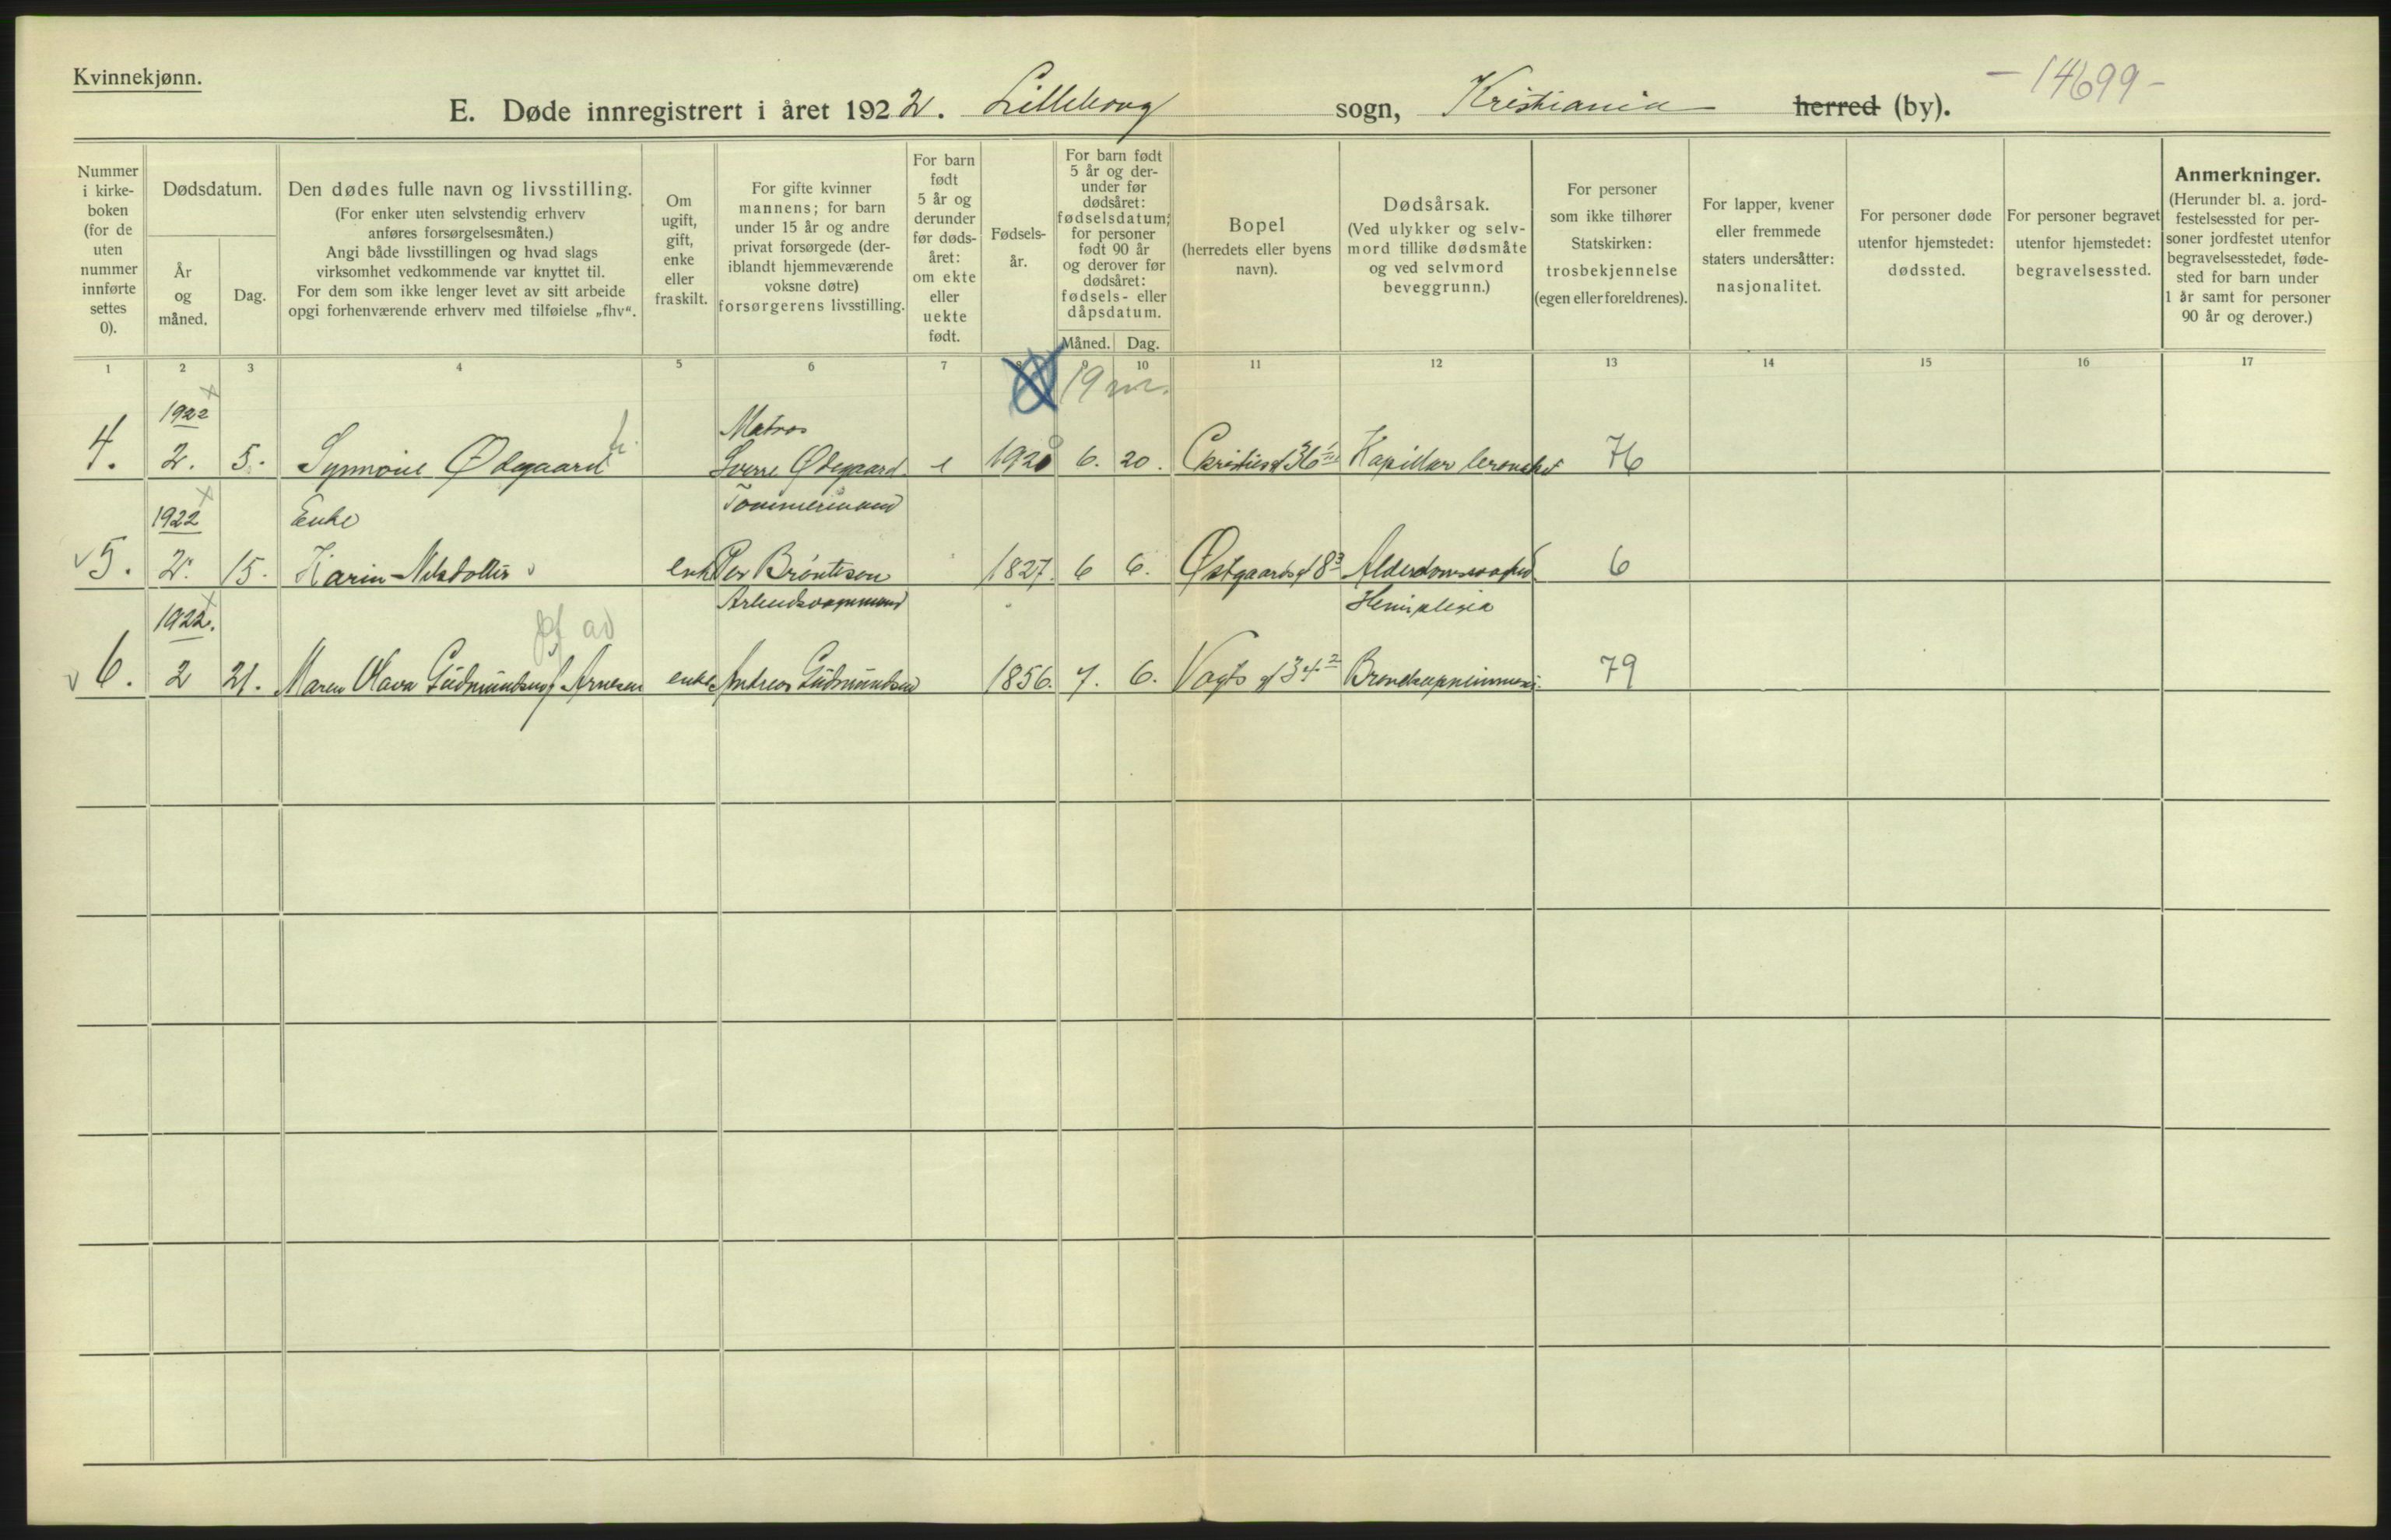 Kvinnekjønn.
- 14699 -
E. Døde innregistrert i året 1922. Lilleborg sogn, Kristiania herred (by).
Nummer i kirkeboken (for de uten nummer innførte settes 0).
Dødsdatum.
År og måned.
Dag.
Den dødes fulle navn og livsstilling.
(For enker uten selvstendig erhverv anføres forsørgelsesmåten.)
Angi både livsstillingen og hvad slags virksomhet vedkommende var knyttet til.
For dem som ikke lenger levet av sitt arbeide opgi forhenværende erhverv med tilføielse „fhv“.
Om ugift, gift, enke eller fraskilt.
For gifte kvinner mannens; for barn under 15 år og andre privat forsørgede (deriblandt hjemmeværende voksne døtre) forsørgerens livsstilling.
For barn født 5 år og derunder før dødsåret: om ekte eller uekte født.
Fødselsår.
For barn født 5 år og derunder før dødsåret: fødselsdatum; for personer født 90 år og derover før dødsåret: fødsels- eller dåpsdatum.
Måned. Dag.
Bopel (herredets eller byens navn).
Dødsårsak.
(Ved ulykker og selvmord tillike dødsmåte og ved selvmord beveggrunn.)
For personer som ikke tilhører Statskirken: trosbekjennelse (egen eller foreldrenes).
For lapper, kvener eller fremmede staters undersåtter: nasjonalitet.
For personer døde utenfor hjemstedet: dødssted.
For personer begravet utenfor hjemstedet: begravelsessted.
Anmerkninger.
(Herunder bl. a. jordfestelsessted for personer jordfestet utenfor begravelsesstedet, fødested for barn under 1 år samt for personer 90 år og derover.)
1 2 3 4 5 6 7 9 10 11 12 13 14 15 16 17
19 m.
1922 Matros
4. 2. 5. Synnøve Ødegaard Sverre Ødegaard e 1920 6. 20. Christies gt 36 Kapillær bronchit 76
1922 Enke Tømmermand
5. 2. 15. Karin Nilsdotter enke Per Brönteson 1827. 6 6. Østgaards gt 8 3 Alderdomssvaghed 6
1922. Arbeidsformand Hemiplegia
6. 2 21. Maren Olava Gudmundsen f. Arnesen enke Andreas Gudmundsen 1856. 7. 6. Vogts gt 34 2 79